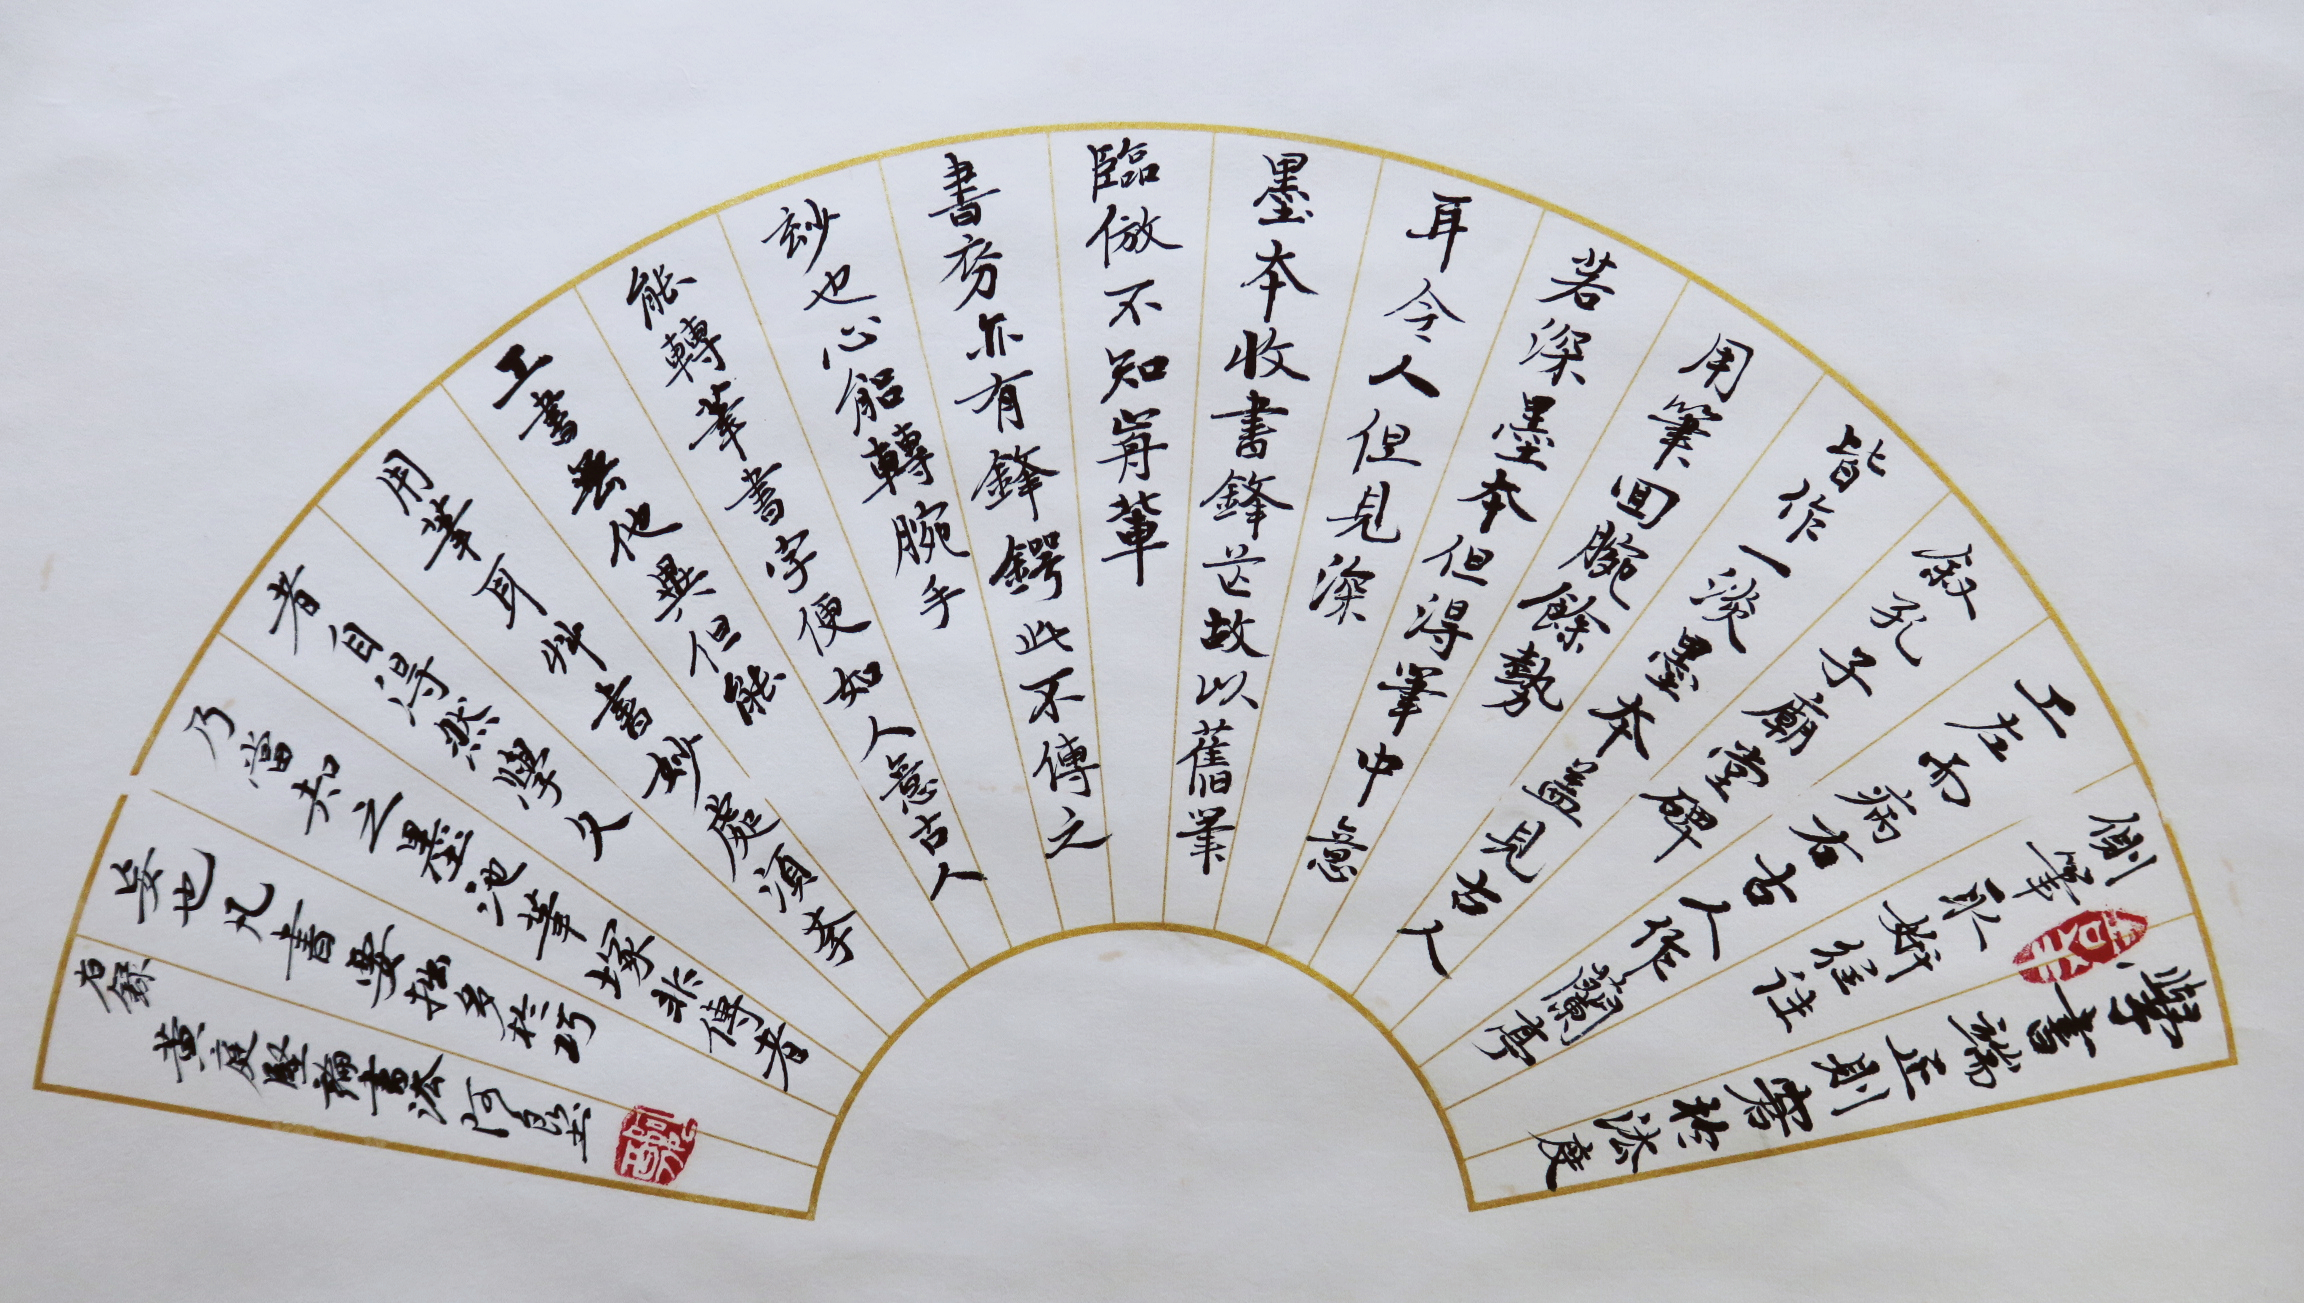 學書端正則窘於法度
側筆取妍往往
工左而病右古人作蘭亭
叙孔子廟堂碑
皆作一淡墨本盖見古人
用筆回腕餘勢
若深墨本但得筆中意
耳今人但見深
墨本收書鋒芒故以舊筆
臨倣不知前輩
書初亦有鋒鍔此不傳之
玅也心能轉腕手
能轉筆書字便如人意古人
工書無他異但能
用筆耳艸書妙處須學
者自得然學久
乃當知之墨池筆塚非傳者
妄也凡書要拙多於巧
右錄黃庭堅論書法阿